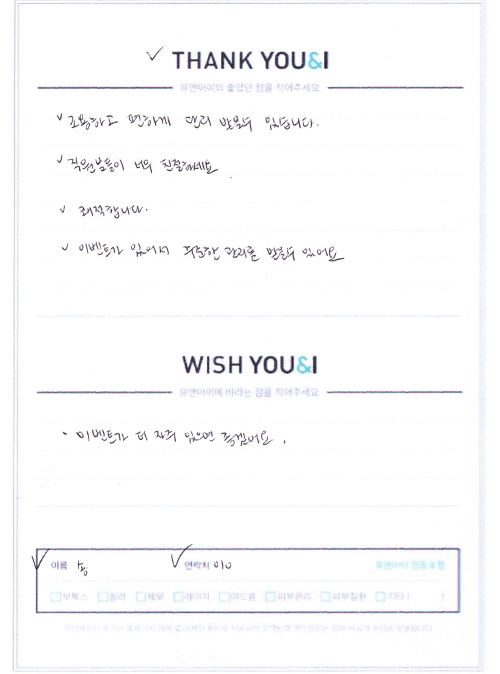 THANK YOU&I
유앤아이의 좋았던 점을 적어주세요
조용하고 편하게 관리 받을수 있습니다.
직원분들이 너무 친절하세요.
쾌적합니다.
이벤트가 있어서 꾸준한 관리를 받을수 있어요
WISH YOU&I
유앤아이에 바라는 점을 적어주세요
- 이벤트가 더 자주 있으면 좋겠어요.
이름 송 연락처 010 유앤아이 영등포점
보톡스 필러 제모 레이저 여드름 피부관리 피부질환 기타 ( )